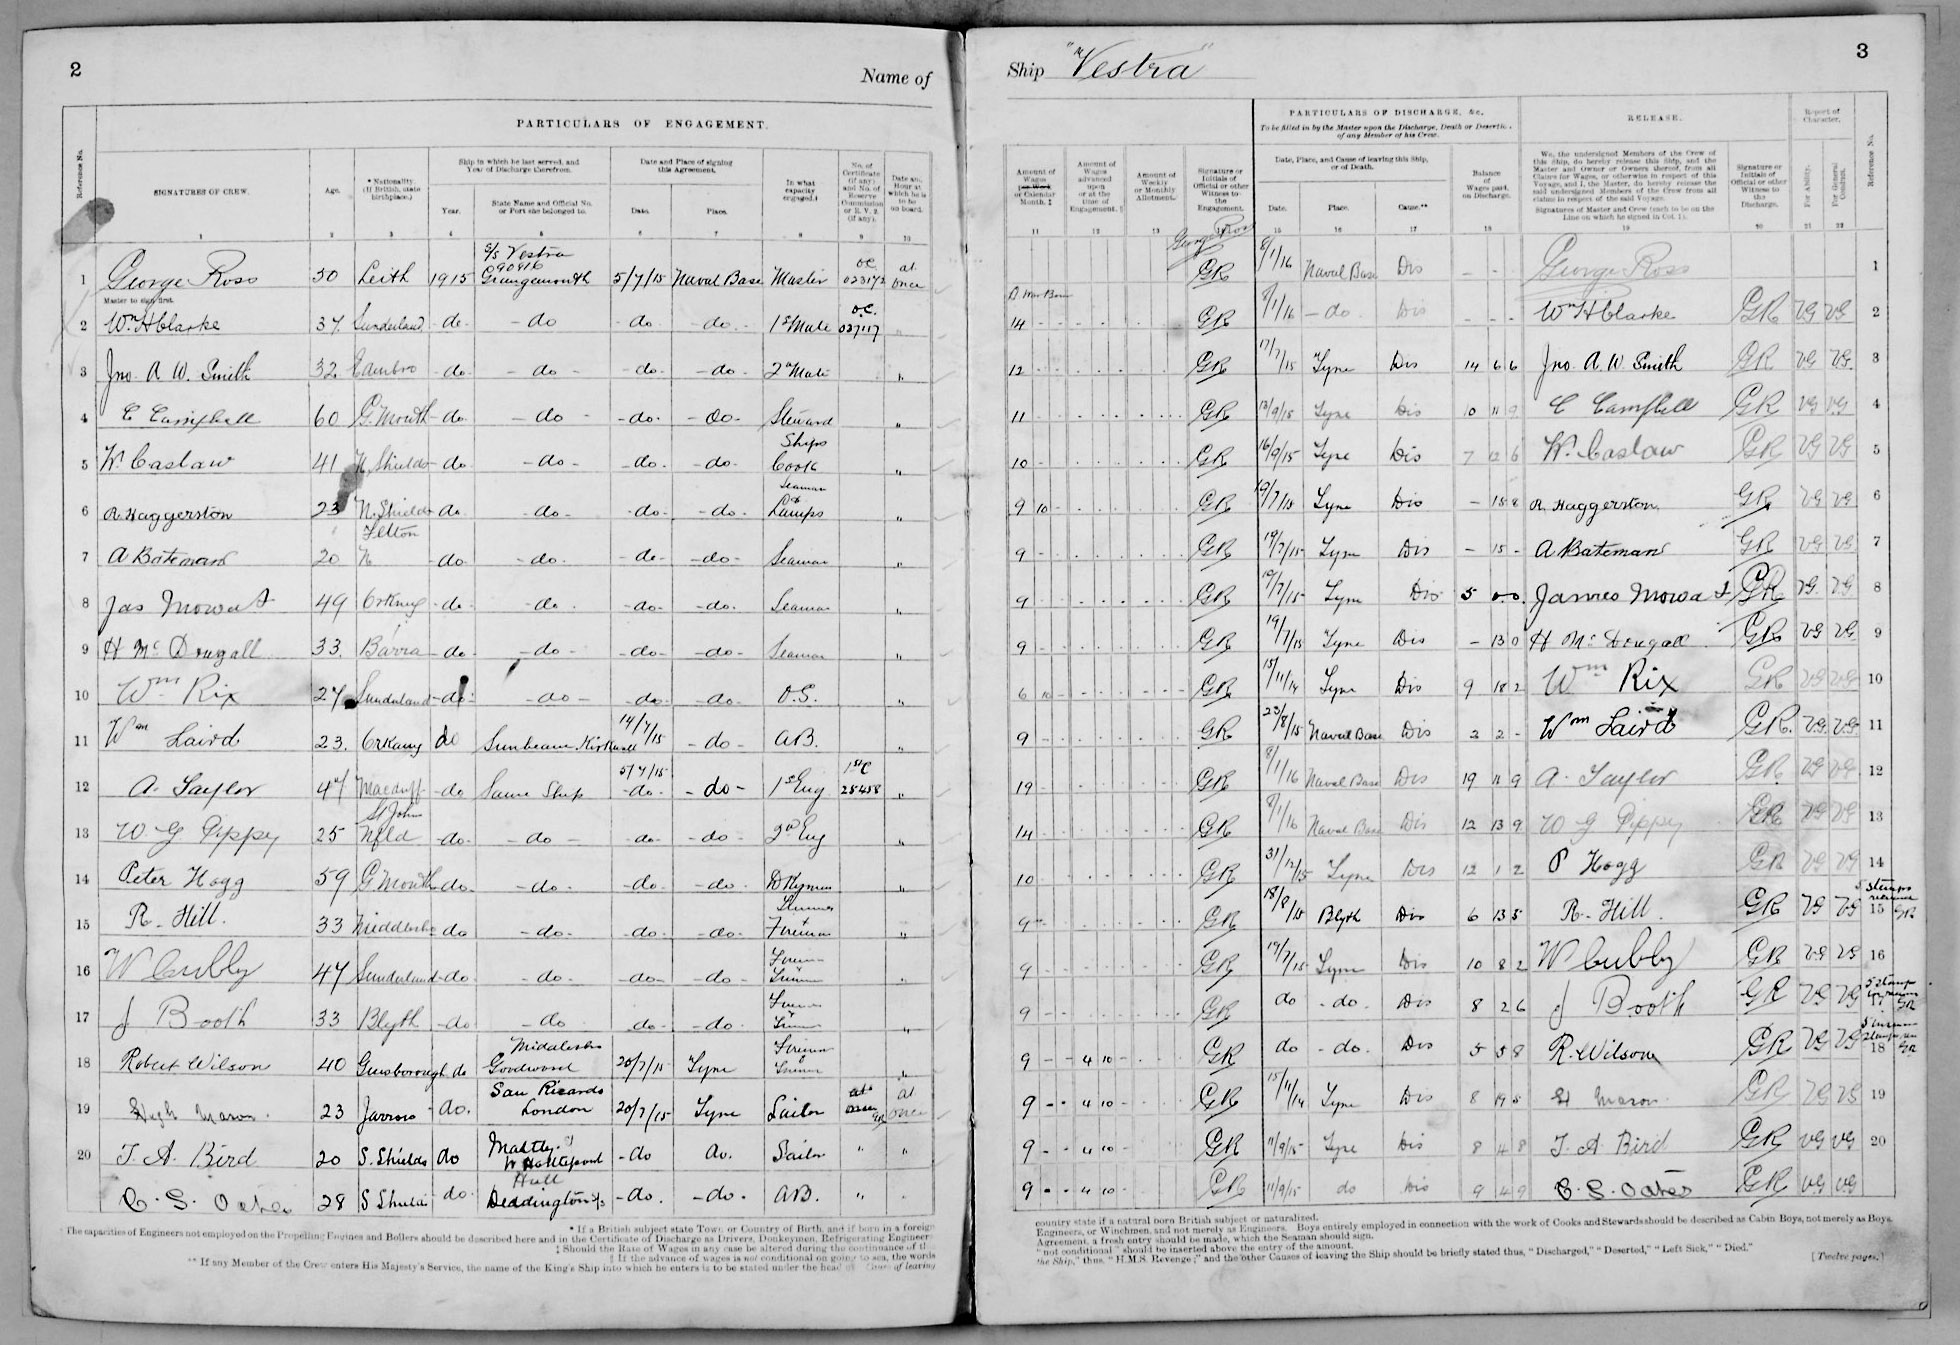 2
Name of
PARTICULARS OF ENGAGEMENT.
Reference No.
SIGNATURES OF CREW.
Age.
* Nationality (If British, state birthplace.)
Ship in which he last served, and Year of Discharge therefrom.
Year.
State Name and Official No. or Port she belonged to.
Date and Place of signing this Agreement.
Date.
Place.
In what capacity engaged.‡
No. of Certificate (if any) and No. of Reserve Commission or R. V. 2. (if any).
Date and Hour at which he is to be on board.
1 2 3 4 5 6 7 8 9 10
1 George Ross 50 Leith 1915 S/S Vestra 90916 Grangemouth 5/7/15 Naval Base Master O.C. 023172 at once
Master to sign first.
2 Wm H Clarke 37 Sunderland - do - - do - do - - do - 1st Mate O.C. 037117 "
3 Jno. A. W. Smith 32 Edinbro - do - - do - - do - - do - 2nd Mate "
4 C Campbell 60 G.Mouth - do - - do - - do - - do - Steward "
5 Wm Caslaw 41 N Shields - do - do - - do - - do - Ships Cook "
6 R. Haggerston 23 N. Shields do - - do - - do - - do - Seaman & Lamps "
7 A Bateman 20 Felton N - do - - do - - do - - do - Seaman "
8 Jas Mowat 49 Orkney - do - - do - - do - - do - Seaman "
9 H McDougall 33 Barra - do - - do - - do - - do - Seaman "
10 Wm Rix 27 Sunderland - do - - do - - do - - do - O.S. "
11 Wm Laird 23. Orkney do Sunbeam Kirkwall 14/7/15 - do - A.B. "
12 A. Taylor 47 Macduff - do Same Ship 5/7/15 - do - - do - 1st Eng 1st C 25458 "
13 W G Pippy 25 St Johns Nfld - do - - do - - do - - do - 2nd Eng "
14 Peter Hogg 59 G Mouth - do - - do - - do - - do - Dkyman "
15 R. Hill. 33 Middlesbro - do - do - - do - - do - Fireman "
16 W Cubby 47 Sunderland - do - - do - - do - - do - Fireman "
17 J Booth 33 Blyth - do - - do - do - - do - Fireman "
18 Robert Wilson 40 Guisborough do Middlesbro Goodwood 20/7/15 Tyne Fireman "
19 Hugh Mason. 23 Jarrow - do. San Ricardo London 20/7/15 Tyne Sailor at once GR at once
20 T. A. Bird 20 S. Shields do W Hartlepool - do do. Sailor " "
C. S. Oates 28 S Shields - do. Hull Deddington S/S - do. - do - A.B. "
* If a British subject state Town or Country of Birth, and if born in a foreign
The capacities of Engineers not employed on the Propelling Engines and Boilers should be described here and in the Certificate of Discharge as Drivers, Donkeymen, Refrigerating Engineers
‡ Should the Rate of Wages in any case be altered during the continuance of th
|| If the advance of wages is not conditional on going to sea, the words
** If any Member of the Crew enters His Majesty's Service, the name of the King's Ship into which he enters is to be stated under the head of Cause of leaving
Ship "Vestra"
3
Amount of Wages or Calendar Month. ‡
Amount of Wages advanced upon or at the time of Engagement. ||
Amount of Weekly or Monthly Allotment.
Signature or Initials of Official or other Witness to the Engagement.
PARTICULARS OF DISCHARGE, &c.
To be filled in by the Master upon the Discharge, Death or Desertion of any Member of his Crew.
Date, Place, and Cause of leaving this Ship, or of Death.
Date.
Place.
Cause.**
Balance of Wages paid on Discharge.
RELEASE.
We, the undersigned Members of the Crew of this Ship, do hereby release this Ship, and the Master and Owner or Owners thereof, from all Claims for Wages, or otherwise in respect of this Voyage, and I, the Master, do hereby release the said undersigned Members of the Crew from all claims in respect of the said Voyage.
Signatures of Master and Crew (each to be on the Line on which he signed in Col. 1).
Signature or Initials of Official or other Witness to the Discharge.
Report of Character.
For Ability.
For General Conduct.
Reference No.
11 12 13 14 15 16 17 18 19 20 21 22
George Ross
GR 8/1/16 Naval Base Dis - - - George Ross 1
14 - - GR 8/1/16 - do - Dis - - - Wm H Clarke GR VG VG 2
12 - - GR 17/7/15 Tyne Dis 14 6 6 Jno. A. W. Smith GR VG VG 3
11 - - GR 13/9/15 Tyne Dis 10 11 9 C Campbell GR VG VG 4
10 - - GR 16/9/15 Tyne Dis 7 12 6 Wm Caslaw GR VG VG 5
9 10 - GR 19/7/15 Tyne Dis - 15 8 R. Haggerston GR VG VG 6
9 - - GR 19/7/15 Tyne Dis - 15 - A Bateman GR VG VG 7
9 - - GR 19/7/15 Tyne Dis 5 0 0 James Mowat GR VG VG 8
9 - - GR 19/7/15 Tyne Dis - 13 0 H McDougall GR VG VG 9
6 10 - GR 15/11/14 Tyne Dis 9 18 2 Wm Rix GR VG VG 10
9 - - GR 23/8/15 Naval Base Dis 2 2 - Wm Laird GR VG VG 11
19 - - GR 8/1/16 Naval Base Dis 19 11 9 A. Taylor GR VG VG 12
14 - - GR 8/1/16 Naval Base Dis 12 13 9 W G Pippy GR VG VG 13
10 - - GR 31/12/15 Tyne Dis 12 1 2 P Hogg GR VG VG 14
9 - - GR 18/8/15 Blyth Dis 6 13 5 R. Hill. GR VG VG 15 GR
9 - - GR 19/7/15 Tyne Dis 10 8 2 W Cubby GR VG VG 16
9 - - GR do - do - Dis 8 2 6 J Booth GR VG VG 17 GR
9 - - 4 10 - GR do - do. Dis 5 5 8 R. Wilson GR VG VG 18 GR
9 - - 4 10 - GR 15/11/14 Tyne Dis 8 19 5 H Mason GR VG VG 19
9 - - 4 10 - GR 11/9/15 Tyne Dis 8 4 8 T. A. Bird GR VG VG 20
9 - - 4 10 - GR 11/9/15 do Dis 9 4 9 C. S. Oates GR VG VG
country state if a natural born British subject or naturalized.
Engineers, or Winchmen, and not merely as Engineers. Boys entirely employed in connection with the work of Cooks and Stewards should be described as Cabin Boys, not merely as Boys.
Agreement, a fresh entry should be made, which the Seaman should sign.
"not conditional" should be inserted above the entry of the amount.
the Ship," thus, "H.M.S. Revenge;" and the other Causes of leaving the Ship should be briefly stated thus, "Discharged," "Deserted," "Left Sick," "Died."
[Twelve pages.]